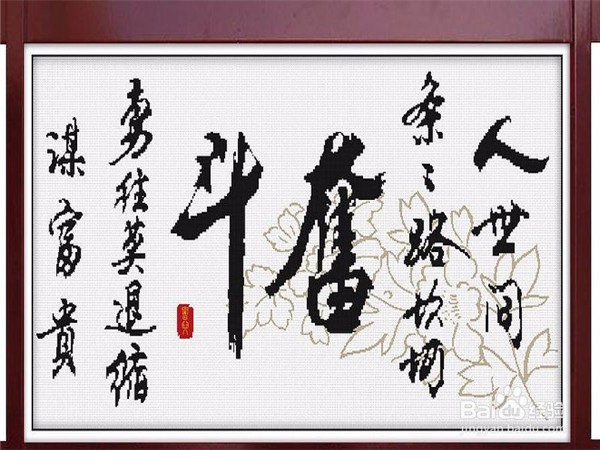 人世间
条々路坎坷
奮斗
勇往莫退缩
谋富貴
Baidu经验
jingyan.baidu.com